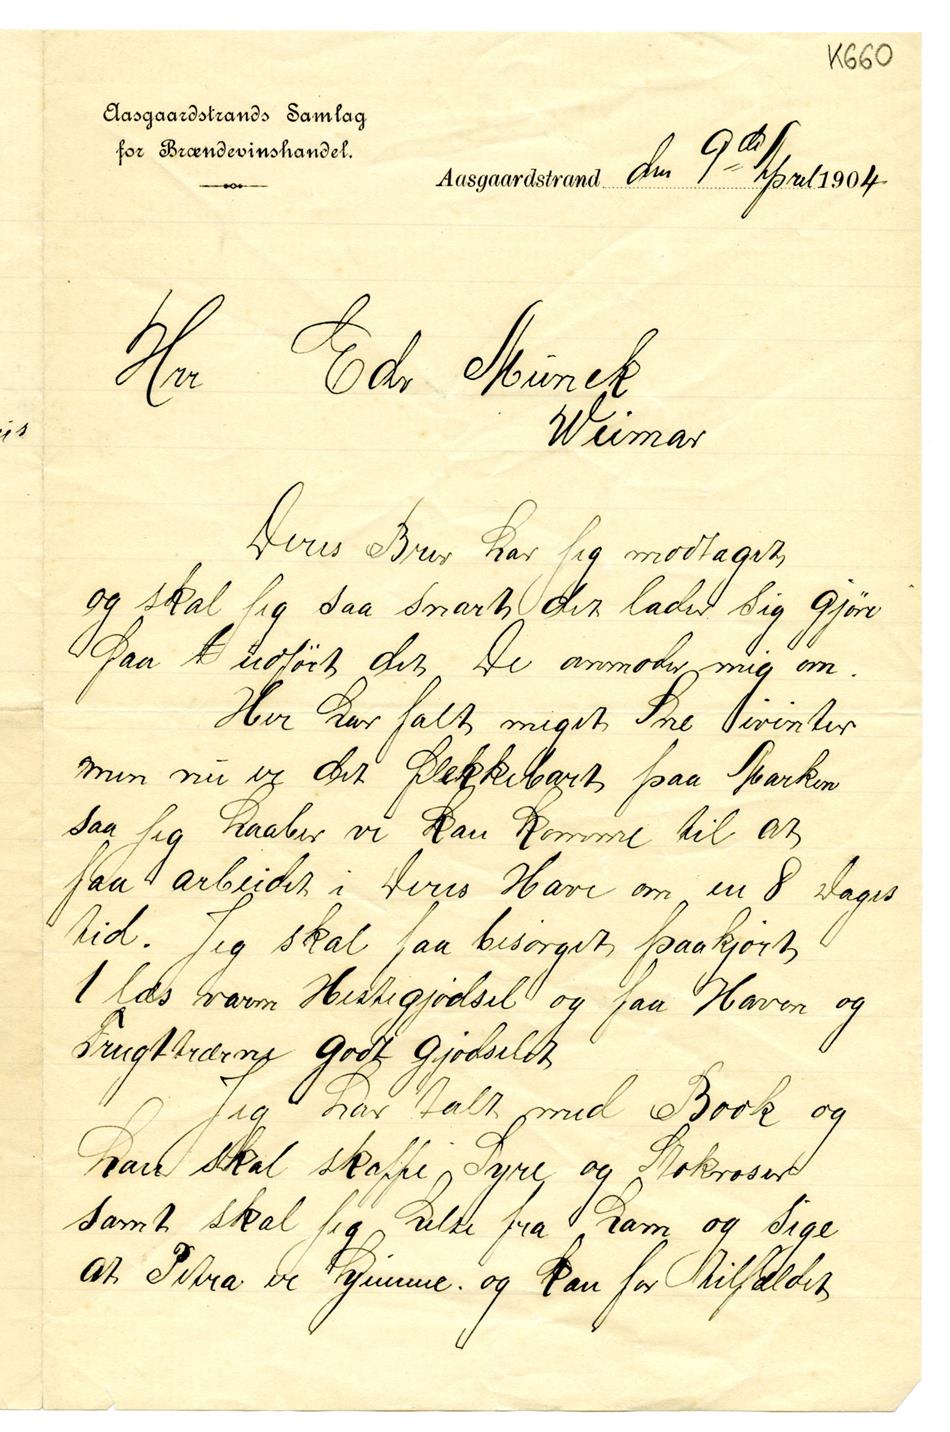 K660
Aasgaardstrands Samlag
for Brændevinshandel.
Aasgaardstrand den 9de April 1904
Hrr Edv Münck
Weimar
is
Deres Brev har jeg modtaget
og skal jeg saa snart det lader sig gjøre
faa udført det De anmoder mig om.
Her har falt meget Sne ivinter
men nu er det flekkebart paa Marken
saa jeg haaber vi kan komme til at
faa arbeidet i Deres Have om en 8 Dages
tid. Jeg skal faa besørget paakjørt
1 læs varm Hestegjødsel og faa Haven og
Frugttrærne godt gjødselet
Jeg har talt med Book og
han skal skaffe Syre og Stokroser
samt skal jeg hilse fra ham og sige
at Petra er hjemme. og kan for tilfældet